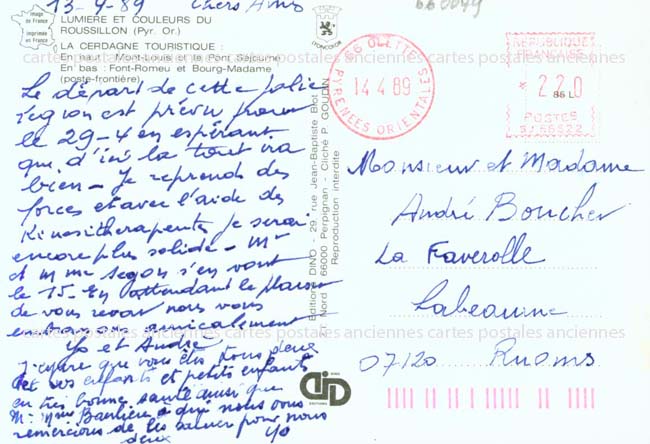 13-4-89 Chers Amis
660049
Image de France
imprimée en France
LUMIERE ET COULEURS DU
ROUSSILLON (Pyr. Or.)
LA CERDAGNE TOURISTIQUE :
En haut : Mont-Louis et le Pont Séjourné
En bas : Font-Romeu et Bourg-Madame
(poste-frontière)
Le départ de cette jolie
région est prévu pour
le 29-4 en espérant
que d'ici là tout ira
bien - Je reprends des
forces et avec l'aide des
Kinésithérapeutes je serai
encore plus solide - Mr
et mme Segon s'en vont
le 15 - En attendant le plaisir
de vous revoir nous vous
embrassons amicalement
Yo et André
J'espère que vous êtes tous deux
et vos enfants et petits enfants
en très bonne santé ainsi que
Mr Mme à qui nous vous
remercions de les saluer pour nous
deux Yo
Editions DINO - 29, rue Jean-Baptiste Biot
ZI Nord 66000 Perpignan - Cliché P. GOUDIN
Reproduction interdite
66 OLETTE
14 4 89
PYRENEES ORIENTALES
REPUBLIQUE
FRANÇAISE
2 2.0
POSTES
Monsieur et Madame
André Boucher
La Faverolle
Labeaume
07120 Ruoms
cartes postales anciennes cartes postales anciennes cartes postales anciennes
cartes postales anciennes cartes postales anciennes cartes postales anciennes